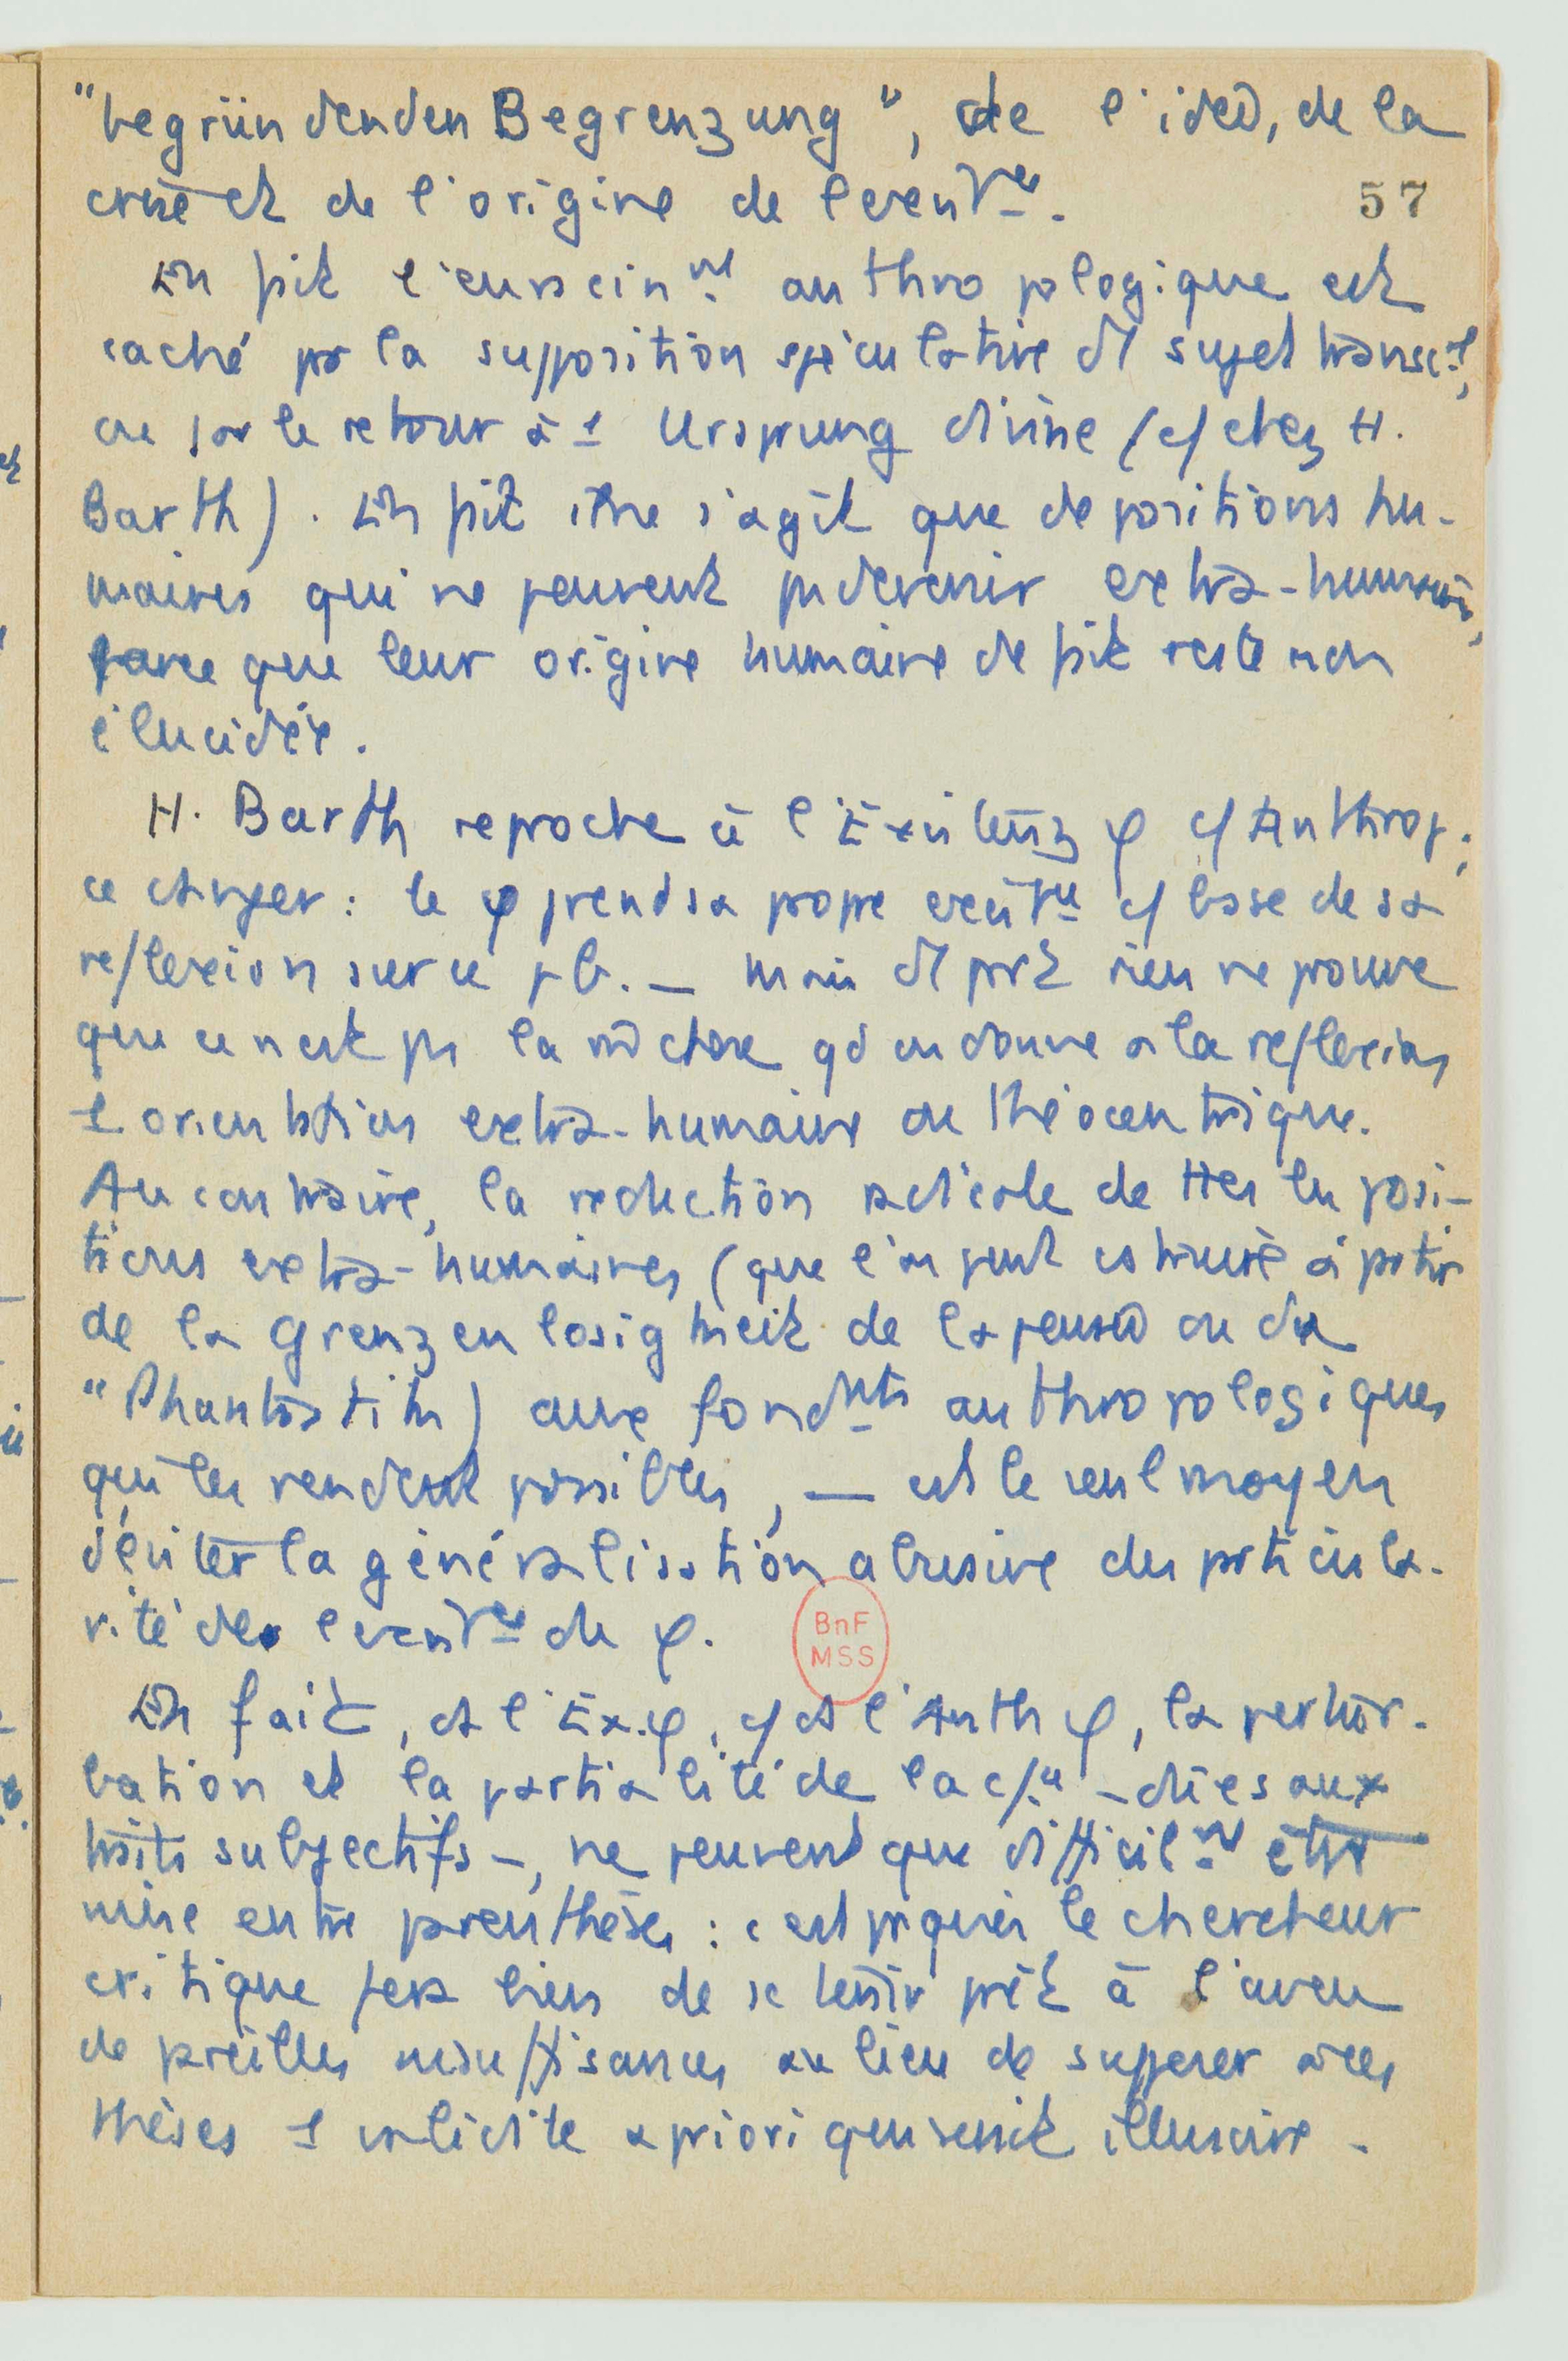 "begründenden Begrenzung", de l'idée, de la
et de l'origine de
57
En fait l'enracin^mt anthropologique est
caché par la supposition spéculative d'1 sujet transc^al,
ou par le retour à 1 Ursprung divine (c/ chez H.
Barth). En fait il ne s'agit que de positions hu-
maines qui ne peuvent pas devenir extra-humaines,
parce que leur origine humaine de fait reste non
élucidée.
H. Barth reproche à l'Existenz φ c/ Anthrop.
ce danger : le φ prend sa propre c/ base de sa
réflexion sur ce pb. — Mais d'1 part rien ne prouve
que ce n'est pas la m̂ chose qd on donne à la réflexion
1 orientation extra-humaine ou théocentrique.
Au contraire, la réduction radicale de ttes les posi-
tions extra-humaines (que l'on peut à partir
de la Grenzenlosigkeit de la pensée ou du
"Phantastik) aux fond^mts anthropologiques
qui les rendent possibles, — est le seul moyen
d'éviter la généralisation abusive des particula-
rités de du φ.
En fait, ds l'Ex.φ, c/ ds l'Anth φ, la pertur-
bation et la partialité de la – dues aux
traits subjectifs –, ne peuvent que difficil^mt être
mise entre parenthèses : c'est pquoi le chercheur
critique fera bien de se tenir prêt à l'aveu
de pareilles insuffisances au lieu de supposer à ces
thèses 1 validité a priori qui serait illusoire.
BnF
MSS